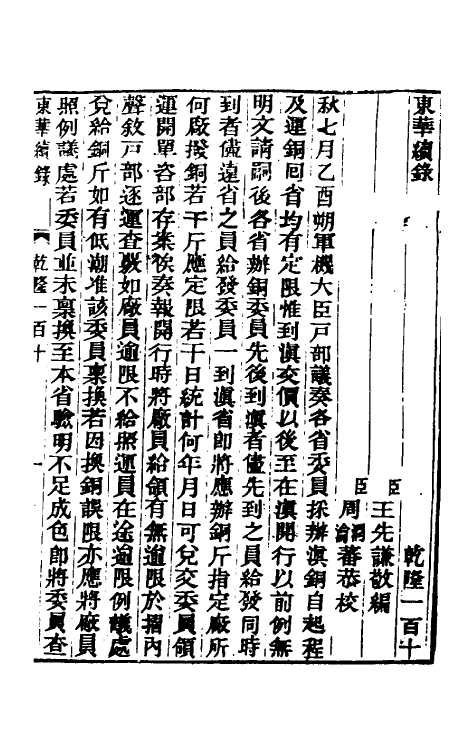 東華續錄
乾隆一百十
臣王先謙敬編
臣周潤蕃恭校
秋七月乙酉朔軍機大臣戸部議奏各省委員採辦滇銅自起程
及運銅回省均有定限惟到滇交價以後至在滇開行以前例無
明文請嗣後各省辦銅委員先後到滇者儘先到之員給發同時
到者儘遠省之員給發委員一到滇省即將應辦銅斤指定廠所
何廠撥銅若干斤應定限若干日統計何年月日可兌交委員領
運開單咨部存案俟奏報開行時將廠員給領有無逾限於摺內
聲敘戸部逐運查覈如廠員逾限不給照運員在途逾限例議處
兌給銅斤如有低潮准該委員稟換若因換銅誤限亦應將廠員
照例議處若委員並未稟換至本省驗明不足成色即將委員查
東華續錄
乾隆一百十
一